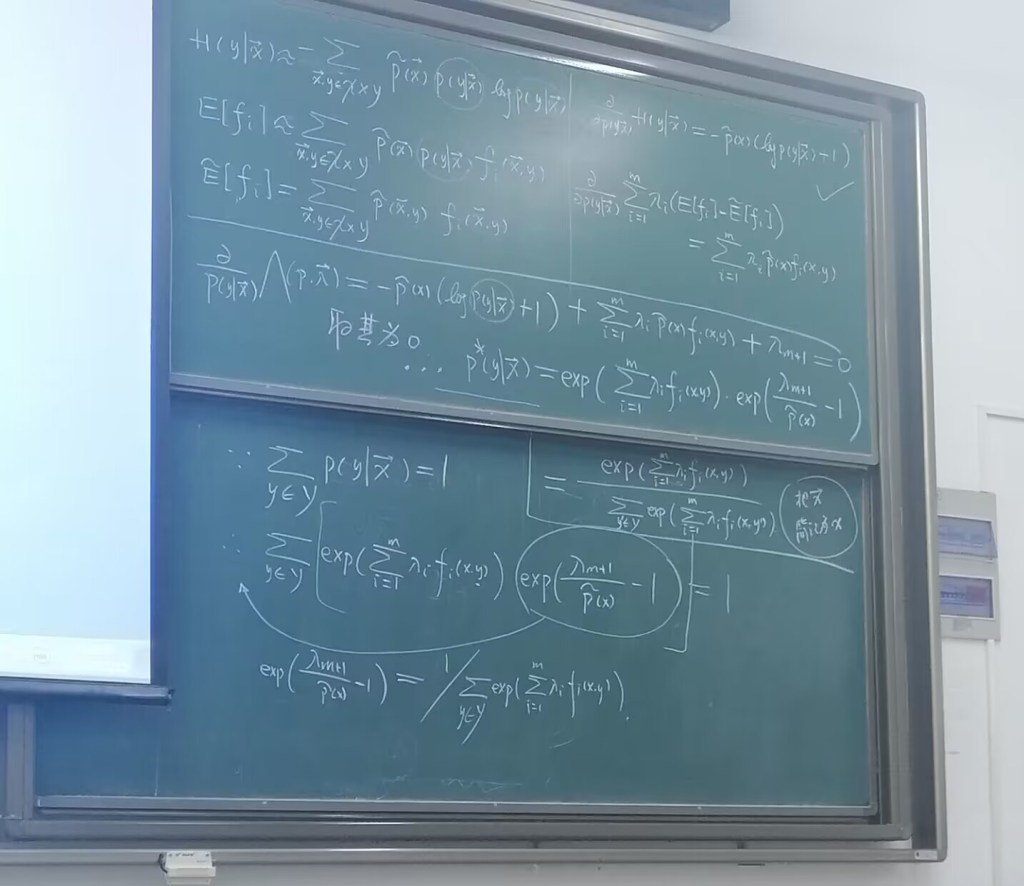 H(y|x⃗) ≈ -∑_{x⃗,y∈X×Y} p̃(x⃗) p(y|x⃗) log p(y|x⃗)
E[f_i] ≈ ∑_{x⃗,y∈X×Y} p̃(x⃗) p(y|x⃗) f_i(x⃗,y)
Ẽ[f_i] = ∑_{x⃗,y∈X×Y} p̃(x⃗,y) f_i(x⃗,y)
∂/∂p(y|x⃗) H(y|x⃗) = -p̃(x)(log p(y|x⃗)-1) ✓
∂/∂p(y|x⃗) ∑_{i=1}^{m} λ_i(E[f_i]-Ẽ[f_i])
= ∑_{i=1}^{m} λ_i p̃(x) f_i(x,y)
∂/p(y|x⃗) Λ(p,λ⃗) = -p̃(x)(log p(y|x⃗)+1) + ∑_{i=1}^{m} λ_i p̃(x) f_i(x,y) + λ_{m+1} = 0
取其为0
... p*(y|x⃗) = exp(∑_{i=1}^{m} λ_i f_i(x,y)) · exp(λ_{m+1}/p̃(x) -1)
= exp(∑_{i=1}^{m} λ_i f_i(x,y)) / ∑_{y∈Y} exp(∑_{i=1}^{m} λ_i f_i(x,y))
把x⃗
简记为x
∵ ∑_{y∈Y} p(y|x⃗) = 1
∴ ∑_{y∈Y} [exp(∑_{i=1}^{m} λ_i f_i(x,y)) exp(λ_{m+1}/p̃(x) -1)] = 1
exp(λ_{m+1}/p̃(x) -1) = 1/∑_{y∈Y} exp(∑_{i=1}^{m} λ_i f_i(x,y)).